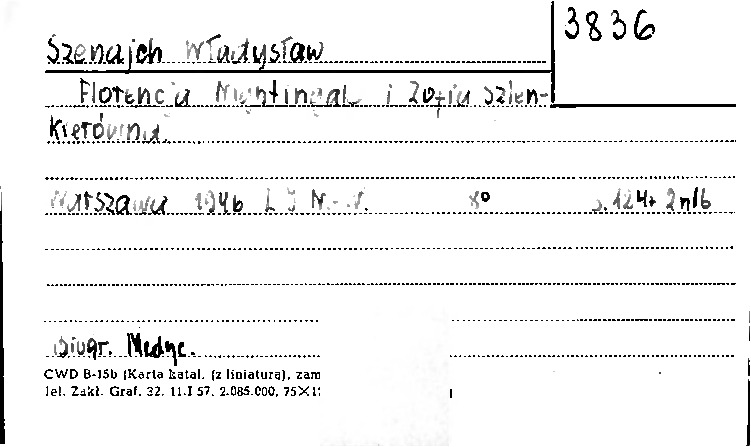 3836
Szenajch Władysław
Florencja Nightingal i Zofia Szlen-
kierówna.
Warszawa 1946 L I N.-W. 8º s. 124+2nlb
Biogr. Medyc.
CWD B-15b (Karta katal. (z liniaturą), zam
Jel. Zakł. Graf. 32. 11.I 57. 2.085.000, 75×1